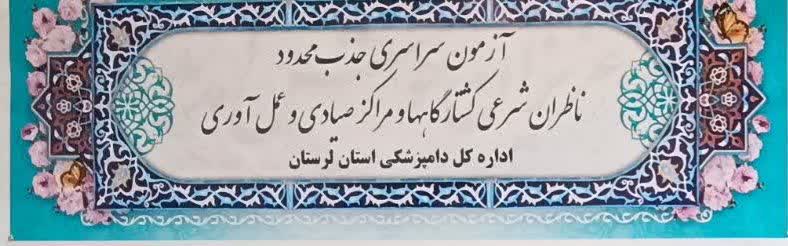 آزمون سراسری جذب محدود
ناظران شرعی کشتارگاهها و مراکز صیادی و عمل آوری
اداره کل دامپزشکی استان لرستان